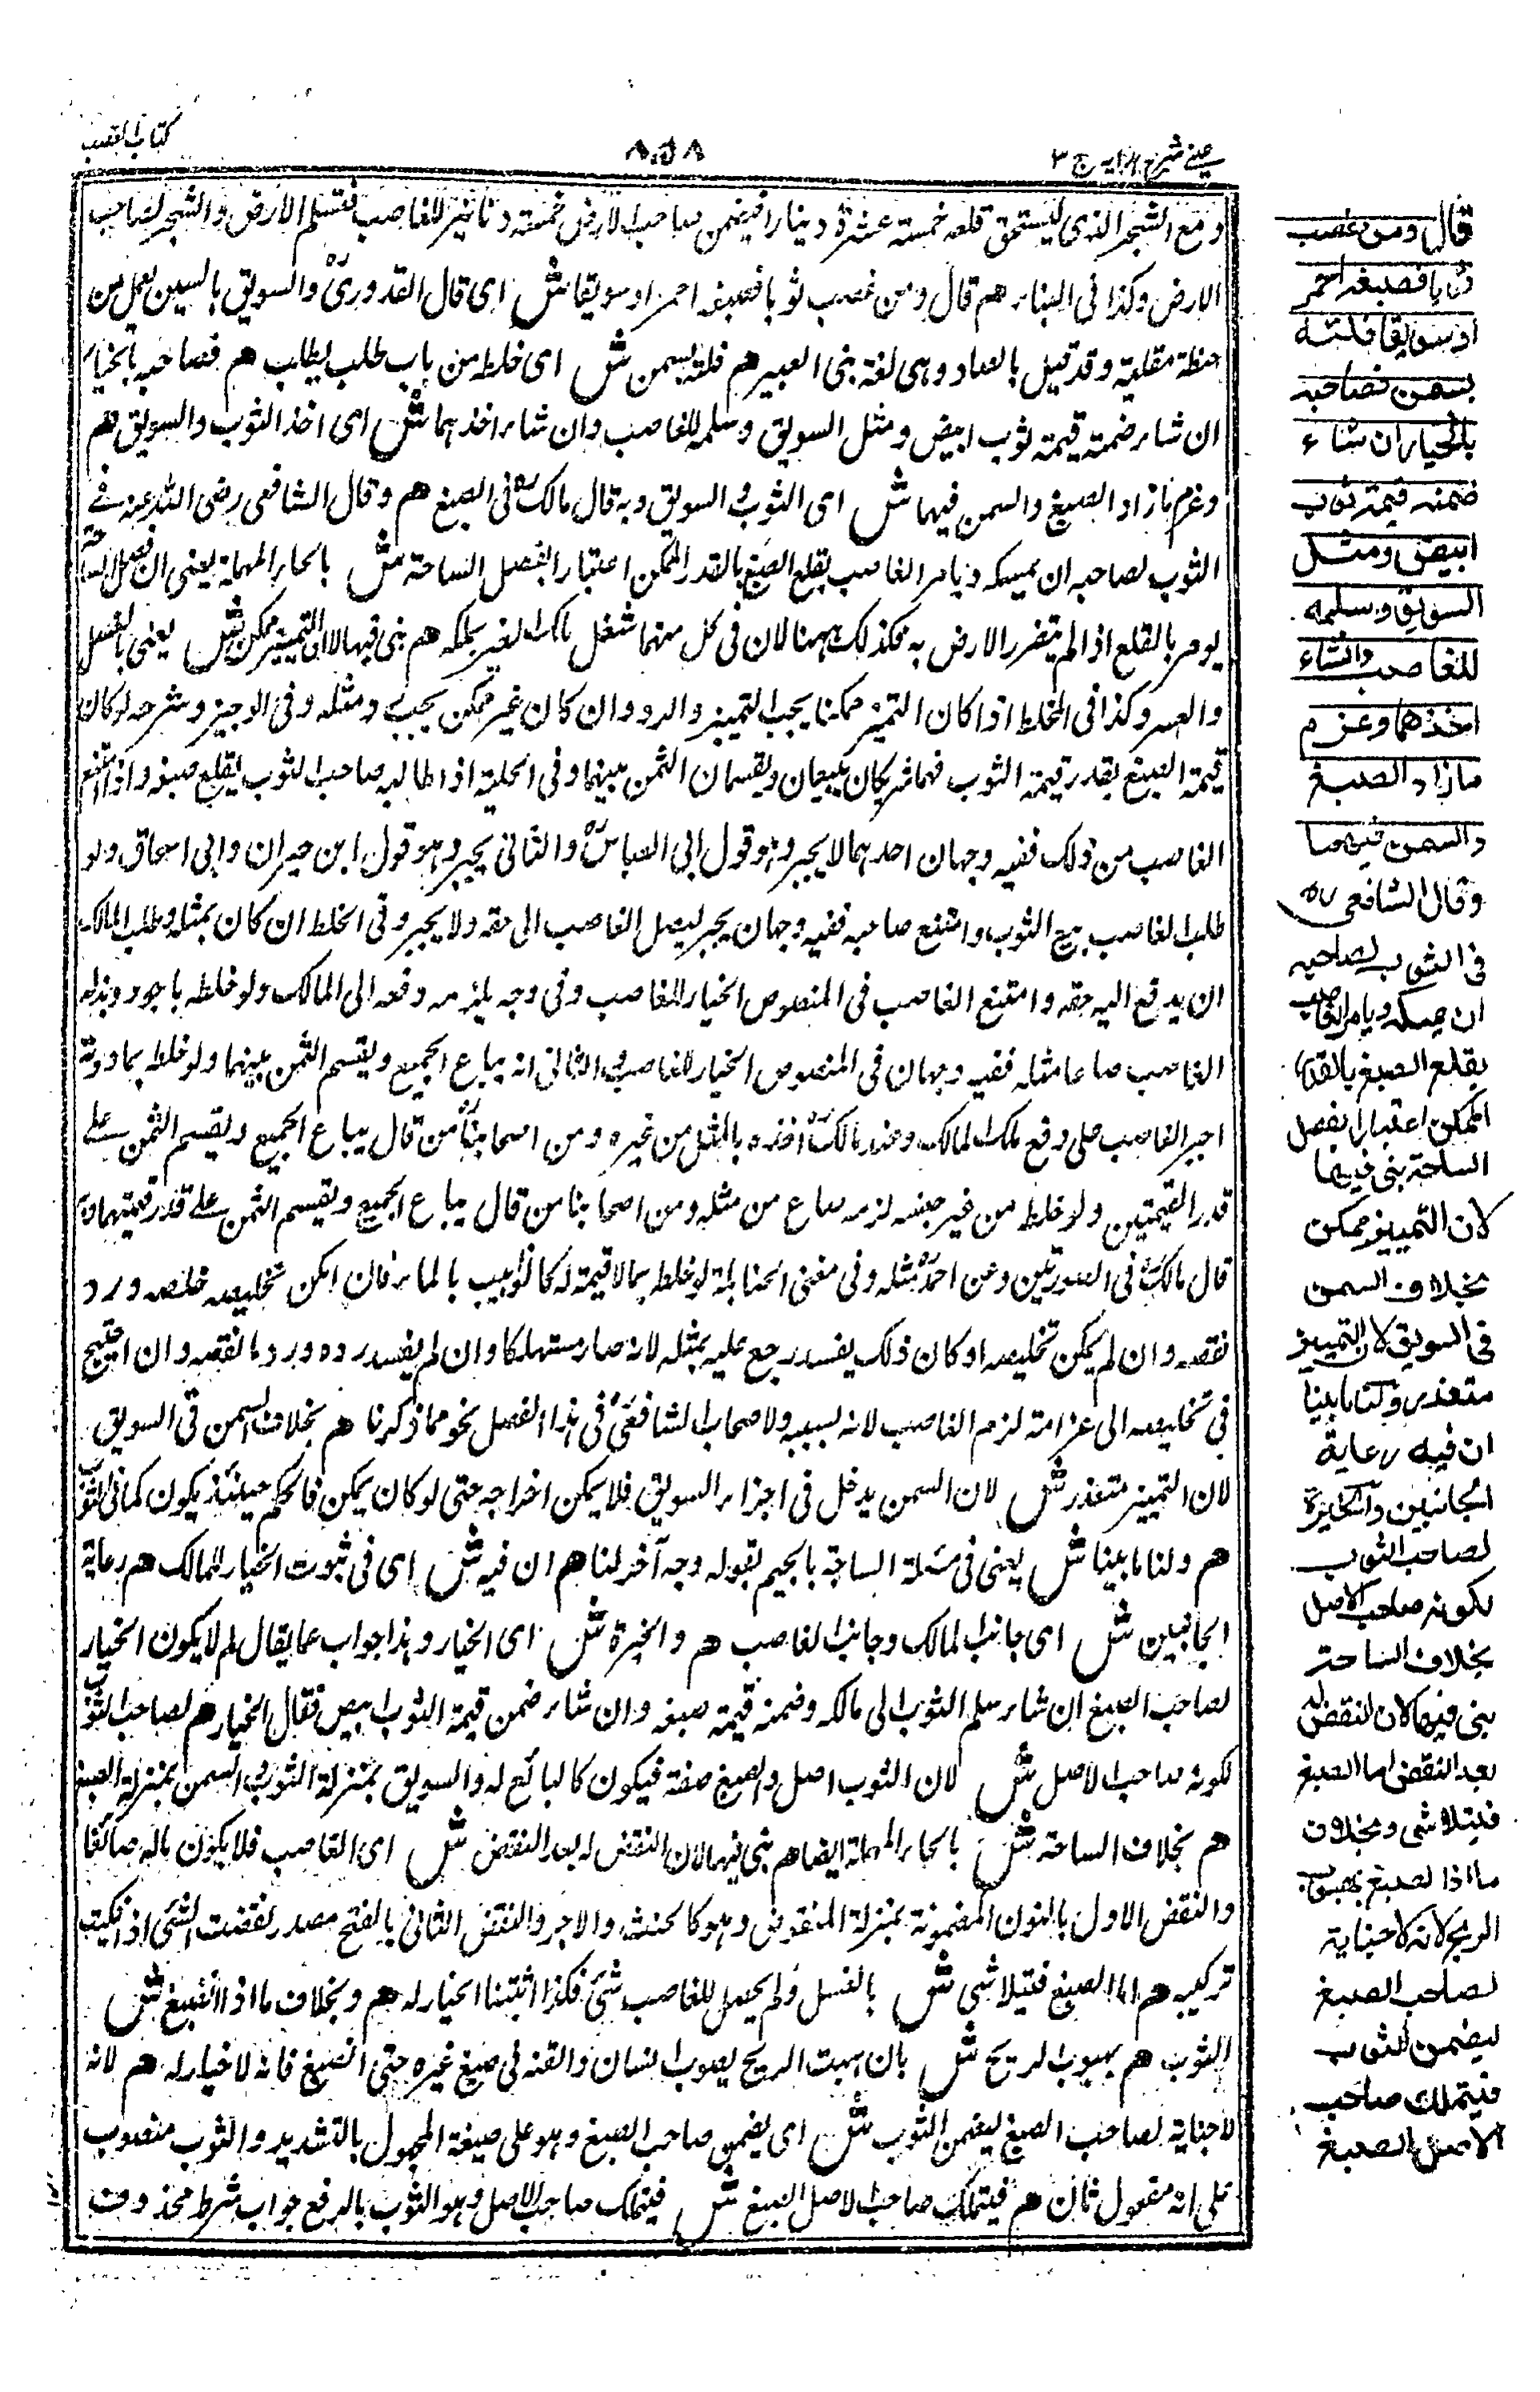 عینی شرح ہدایہ ج ۳
۸۵۸
کتاب الغصب
ومع الشجر الذی یستحق قلعہ خمستہ عشرۃ دینارا فیضمن صاحب الارض خمستہ دنانیر للغاصب فتسلم الارض والشجر لصاحب
الارض وکذا فی البناء ھم قال ومن غصب ثوبا فصبغہ احمر او سویقا ش ای قال القدوریؒ والسویق بالسین یعمل من
حنطۃ مقلیۃ وقد قیل بالصاد وہی لغۃ بنی العنبر ھم فلتہ بسمن ش ای خلطہ من باب طلب یطلب ھم فصاحبہ بالخیار
ان شاء ضمنہ قیمۃ ثوب ابیض ومثل السویق وسلمہ للغاصب وان شاء اخذہما ش ای اخذ الثوب والسویق ھم
وغرم مازاد الصبغ والسمن فیہما ش ای الثوب والسویق وبہ قال مالکؒ فی الصبغ ھم وقال الشافعی رضی اللہ عنہ فے
الثوب لصاحبہ ان یمسکہ ویامر الغاصب بقلع الصبغ بالقدر الممکن اعتبارا بفصل الساحۃ ش بالحاء المہملۃ یعنی ان فصل الساحۃ
یومر بالقلع اذا لم یتضرر الارض بہ فکذلک ہہنا لان فی کل منہما شغل ملک الغیر بملکہ ھم بنی فیہا لان التمییز ممکن ش یعنی بالغسل
والعصر وکذا فی الخلط اذا کان التمییز ممکنا یجب التمییز والرد وان کان غیر ممکن یجب ومثلہ وفی الوجیز وشرحہ لو کان
قیمۃ الصبغ بقدر قیمۃ الثوب فہما شریکان یبیعان ویقسمان الثمن بینہما وفی الحلیۃ اذا طالبہ صاحب الثوب بقلع صبغہ واذا امتنع
الغاصب من ذلک ففیہ وجہان احدہما لا یجبر وہو قول ابی العباسؒ والثانی یجبر وہو قول ابن خیران وابی اسحاق ولو
طلب الغاصب بیع الثوب وامتنع صاحبہ ففیہ وجہان یجبر لیصل الغاصب الی حقہ ولا یجبر وفی الخلط ان کان بمثلہ وطلب المالک
ان یدفع الیہ حقہ وامتنع الغاصب فی المنصوص الخیار للغاصب وفی وجہ یلزمہ دفعہ الی المالک ولو خلطہ باجود وبذلہ
الغاصب صاعا مثلہ ففیہ وجہان فی المنصوص الخیار للغاصب والثانی انہ یباع الجمیع ویقسم الثمن بینہما ولو خلطہ بما دونہ
اجبر الغاصب علی دفع ملک المالک وعند مالکؒ اخذہ بالمثل من غیرہ ومن اصحابناؒ من قال یباع الجمیع ویقسم الثمن علے
قدر القیمتین ولو خلطہ من غیر جنسہ لزمہ صاع من مثلہ ومن اصحابنا من قال یباع الجمیع ویقسم الثمن علے قدر قیمتہما وبہ
قال مالکؒ فی الصورتین وعن احمدؒ مثلہ وفی مغنی الحنابلۃ لو خلطہ بما لا قیمۃ لہ کالزبیب بالماء فان امکن تخلیصہ خلصہ ورد
نقصہ وان لم یمکن تخلیصہ او کان ذلک یفسد رجع علیہ بمثلہ لانہ صار مستہلکا وان لم یفسد ردہ ورد ما نقصہ وان احتیج
فی تخلیصہ الی غرامۃ لزم الغاصب لانہ بسببہ ولاصحاب الشافعیؒ فی ہذا الفصل نحو مما ذکرنا ھم بخلاف السمن فی السویق
لان التمییز متعذر ش لان السمن یدخل فی اجزاء السویق فلا یمکن اخراجہ حتی لو کان یمکن فالحکم حینئذ یکون کما فی الثوب
ھم ولنا ما بینا ش یعنی فی مسئلۃ الساجۃ بالجیم لقولہ وجہ آخر لنا ھم ان فیہ ش ای فی ثبوت الخیار للمالک ھم رعایۃ
الجانبین ش ای جانب المالک وجانب الغاصب ھم والخیرۃ ش ای الخیار وہذا جواب عما یقال لم لا یکون الخیار
لصاحب الصبغ ان شاء سلم الثوب الی مالکہ وضمنہ قیمۃ صبغہ وان شاء ضمن قیمۃ الثوب ابیض فقال الخیار ھم لصاحب الثوب
لکونہ صاحب الاصل ش لان الثوب اصل والصبغ صفۃ فیکون کالبائع لہ والسویق بمنزلۃ الثوب والسمن بمنزلۃ الصبغ
ھم بخلاف الساحۃ ش بالحاء المہملۃ ایضا ھم بنی فیہا لان النقض لہ بعد النقض ش ای الغاصب فلا یکون مالہ ضائعا
والنقض الاول بالنون المضمونۃ بمنزلۃ المنقوض وہو کالخشب والاجر والنقض الثانی بالفتح مصدر نقضت الشئ اذا فککت
ترکیبہ ھم اما الصبغ فیتلاشی ش بالغسل ولم یحصل للغاصب شئ فکذا اثبتنا الخیار لہ ھم وبخلاف ما اذا انصبغ ش
الثوب ھم بہبوب الریح ش بان ہبت الریح بثوب انسان والقتہ فی صبغ غیرہ حتی انصبغ فانہ لا خیار لہ ھم لانہ
لا جنایۃ لصاحب الصبغ لیضمن الثوب ش ای یضمن صاحب الصبغ وہو علی صیغۃ المجہول بالتشدید والثوب منصوب
علی انہ مفعول ثان ھم فیتملک صاحب الاصل الصبغ ش فیتملک صاحب الاصل وہو الثوب بالرفع جواب شرط محذوف
قال ومن غصب
ثوبا فصبغہ احمر
او سویقا فلتہ
بسمن فصاحبہ
بالخیار ان شاء
ضمنہ قیمۃ ثوب
ابیض ومثل
السویق وسلمہ
للغاصب وان شاء
اخذھما وغرم
مازاد الصبغ
والسمن فیھما
وقال الشافعی رح
فی الثوب لصاحبہ
ان یمسکہ ویامر الغاصب
بقلع الصبغ بالقدر
الممکن اعتبارا بفصل
الساحۃ بنی فیھا
لان التمییز ممکن
بخلاف السمن
فی السویق لان التمییز
متعذر ولنا ما بینا
ان فیہ رعایۃ
الجانبین والخیرۃ
لصاحب الثوب
لکونہ صاحب الاصل
بخلاف الساحۃ
بنی فیھا لان النقض لہ
بعد النقض اما الصبغ
فیتلاشی وبخلاف
ما اذا انصبغ بھبوب
الریح لانہ لا جنایۃ
لصاحب الصبغ
لیضمن الثوب
فیتملک صاحب
الاصل الصبغ